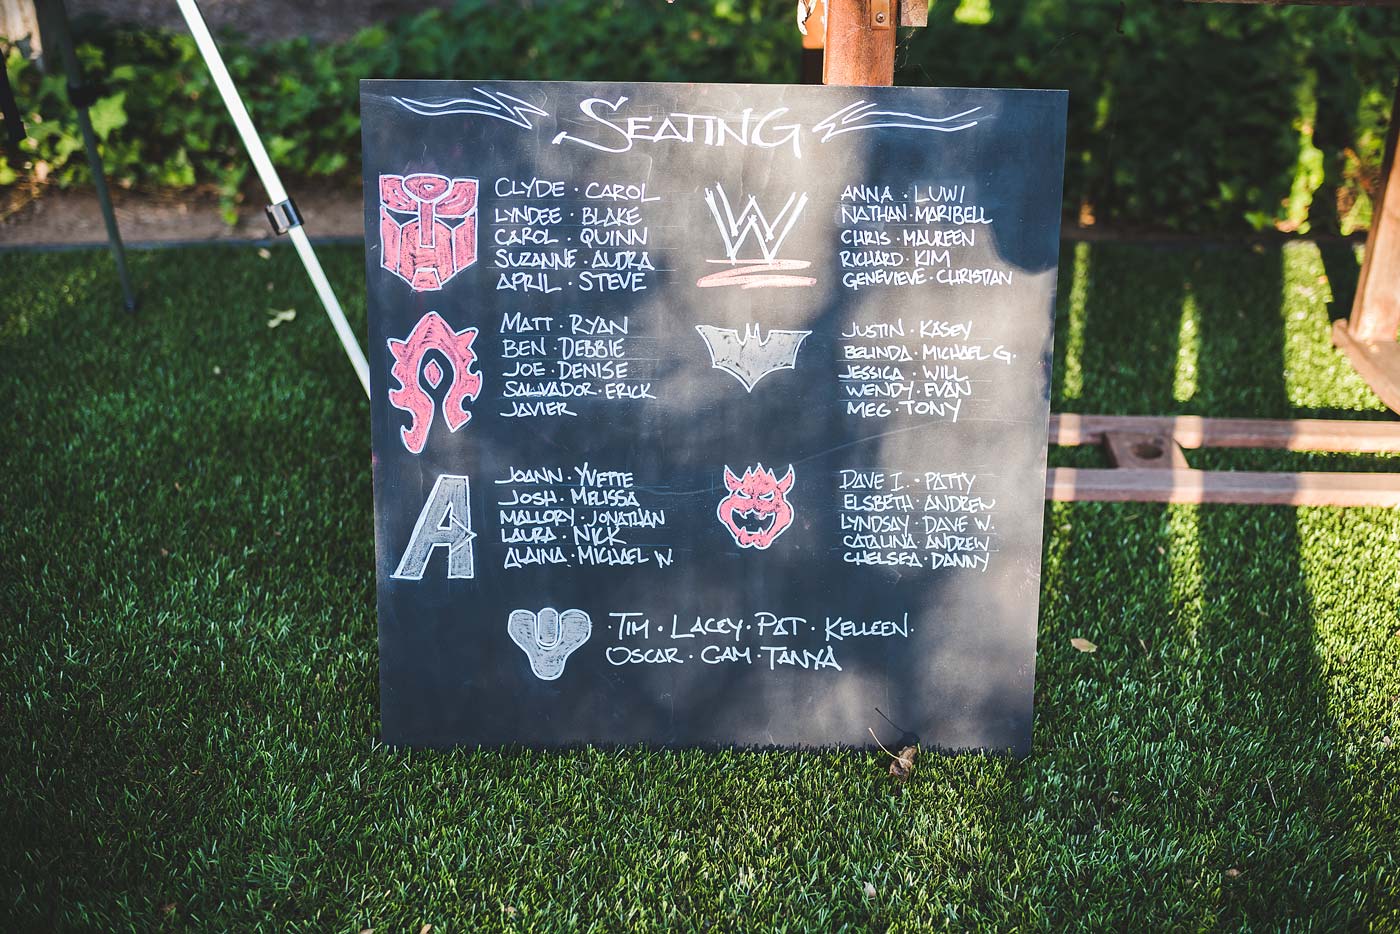 SEATING
CLYDE · CAROL
LYNDEE · BLAKE
CAROL · QUINN
SUZANNE · AUDRA
APRIL · STEVE
W
ANNA · LUWI
NATHAN · MARIBELL
CHRIS · MAUREEN
RICHARD · KIM
GENEVIEVE · CHRISTIAN
MATT · RYAN
BEN · DEBBIE
JOE · DENISE
SALVADOR · ERICK
JAVIER
JUSTIN · KASEY
BELINDA · MICHAEL G.
JESSICA · WILL
WENDY · EVAN
MEG · TONY
A
JOANN · YVETTE
JOSH · MELISSA
MALLORY · JONATHAN
LAURA · NICK
ALAINA · MICHAEL W.
DAVE I. · PATTY
ELSBETH · ANDREW
LYNDSAY · DAVE W.
CATALINA · ANDREW
CHELSEA · DANNY
· TIM · LACEY · PAT · KELLEEN ·
OSCAR · CAM · TANYA